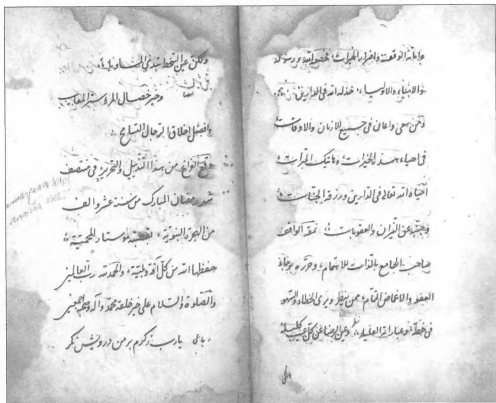 الوقعة واضرار ورسوله
والانبياء والاوصياء خذله الله فى الدارين
ومن سعى واعان فى جميع الازمان والاوقات
فى احياء هذه الخيرات وهاتيك المبرات
احياه الله تعالى فى الدارين ورزقه الجنات
وجنبه عن النيران والعقوبات نمقه الواقف
صاحب الجامع بالذات للاهتمام وحرره برجاء
العفو والاغماض التام ممن ينظر ويرى الخطاء والسهو
فى خطه او عباراته وعين الرضا عن كل عيب كليلة
ولكن عين السخط تبدى المساويا
وخير خصال المرء ستر المعايب
وافضل اخلاق الرجال التسامح
وقع الفراغ من هذا التذييل والتحرير فى منتصف
شهر رمضان المبارك من سنة عشر والف
من الهجرة النبوية بقصبة موستار المحمية
حفظها الله من كل آفة وبلية والحمد لله رب العالمين
والصلوة والسلام على خير خلقه محمد وآله وصحبه اجمعين
رباعى يا رب زكرم بر من درويش نكر